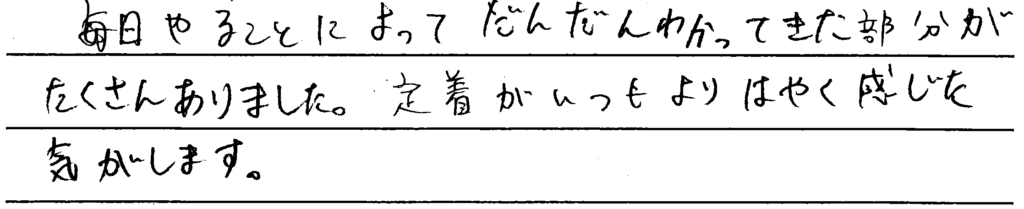 毎日やることによってだんだんわかってきた部分が
たくさんありました。定着がいつもよりはやく感じた
気がします。